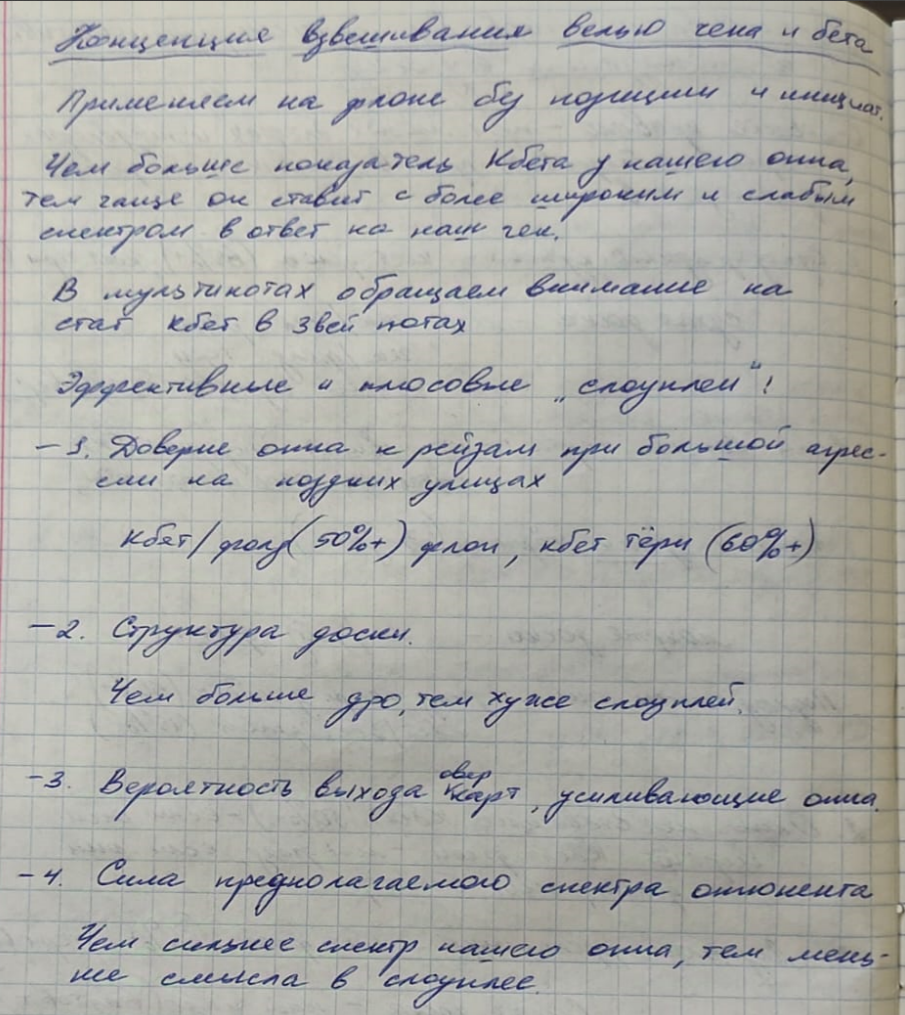 Концепция взвешивания велью чека и бета
Применяем на флопе без позиции и инициат.
Чем больше показатель Кбета у нашего оппа,
тем чаще он ставит с более широким и слабым
спектром в ответ на наш чек.
В мультипотах обращаем внимание на
стат кбет в 3вей потах
Эффективные и плюсовые „слоуплеи"!
-1. Доверие оппа к рейзам при большой агрес-
сии на поздних улицах
Кбет/фолд (50%+) флоп, кбет тёрн (60%+)
-2. Структура доски.
Чем больше дро, тем хуже слоуплей.
-3. Вероятность выхода овер карт, усиливающие оппа.
-4. Сила предполагаемого спектра оппонента
Чем сильнее спектр нашего оппа, тем мень-
ше смысла в слоуплее.